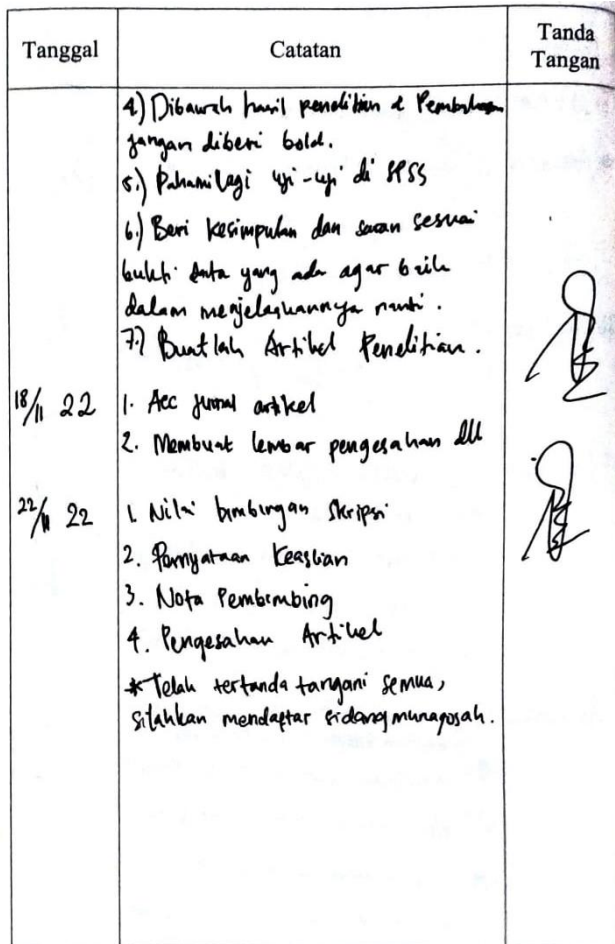 Tanggal
Catatan
Tanda
Tangan
4.) Dibawah hasil penelitian & Pembahasan
jangan diberi bold.
5.) Pahami lagi uji-uji di SPSS
6.) Beri kesimpulan dan saran sesuai
bukti data yang ada agar baik
dalam menjelaskannya nanti.
7.) Buatlah Artikel Penelitian.
18/11 22
1. Acc jurnal artikel
2. Membuat lembar pengesahan dll
22/11 22
1. Nilai bimbingan Skripsi
2. Pernyataan Keaslian
3. Nota Pembimbing
4. Pengesahan Artikel
* Telah tertanda tangani semua,
silahkan mendaftar sidang munaqosah.